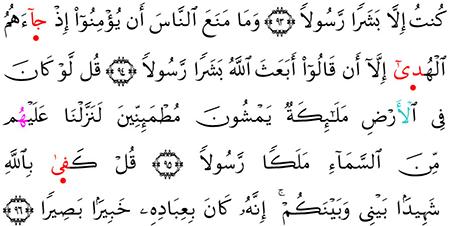 كُنتُ إِلَّا بَشَرًا رَّسُولًا ﴿٩٣﴾ وَمَا مَنَعَ النَّاسَ أَن يُؤْمِنُوٓا۟ إِذْ جَآءَهُمُ
الْهُدَىٰٓ إِلَّآ أَن قَالُوٓا۟ أَبَعَثَ اللَّهُ بَشَرًا رَّسُولًا ﴿٩٤﴾ قُل لَّوْ كَانَ
فِى الْأَرْضِ مَلَٰٓئِكَةٌ يَمْشُونَ مُطْمَئِنِّينَ لَنَزَّلْنَا عَلَيْهُم
مِّنَ السَّمَآءِ مَلَكًا رَّسُولًا ﴿٩٥﴾ قُلْ كَفَىٰ بِاللَّهِ
شَهِيدًۢا بَيْنِى وَبَيْنَكُمْ ۚ إِنَّهُۥ كَانَ بِعِبَادِهِۦ خَبِيرًۢا بَصِيرًا ﴿٩٦﴾